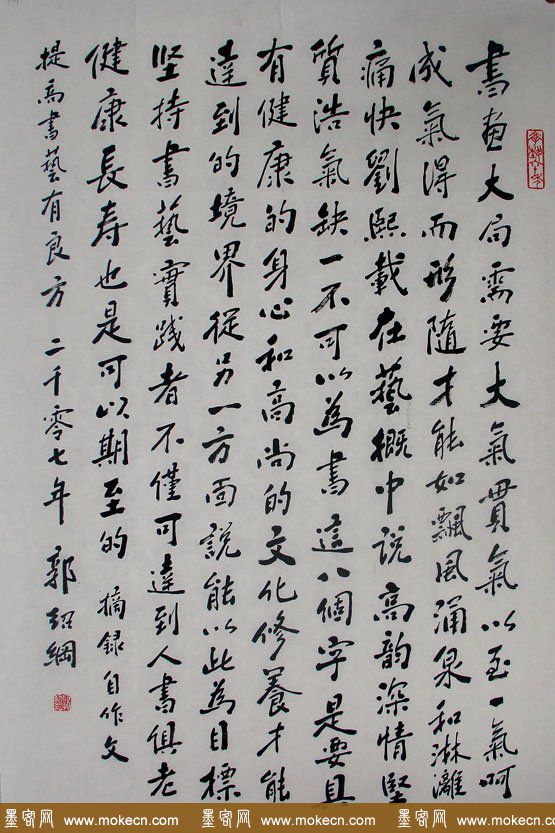 書畫大局需要大氣貫氣以至一氣呵
成氣得而形隨才能如飄風涌泉和淋灕
痛快劉熙載在藝概中說高韵深情堅
質浩氣缺一不可以為書這八個字是要具
有健康的身心和高尚的文化修養才能
達到的境界從另一方面說能以此為目標
坚持書藝實踐者不僅可達到人書俱老
健康長寿也是可以期至的 摘録自作文
提高書藝有良方 二千零七年 郭绍綱
墨客网 www.mokecn.com 墨客网 www.mokecn.com